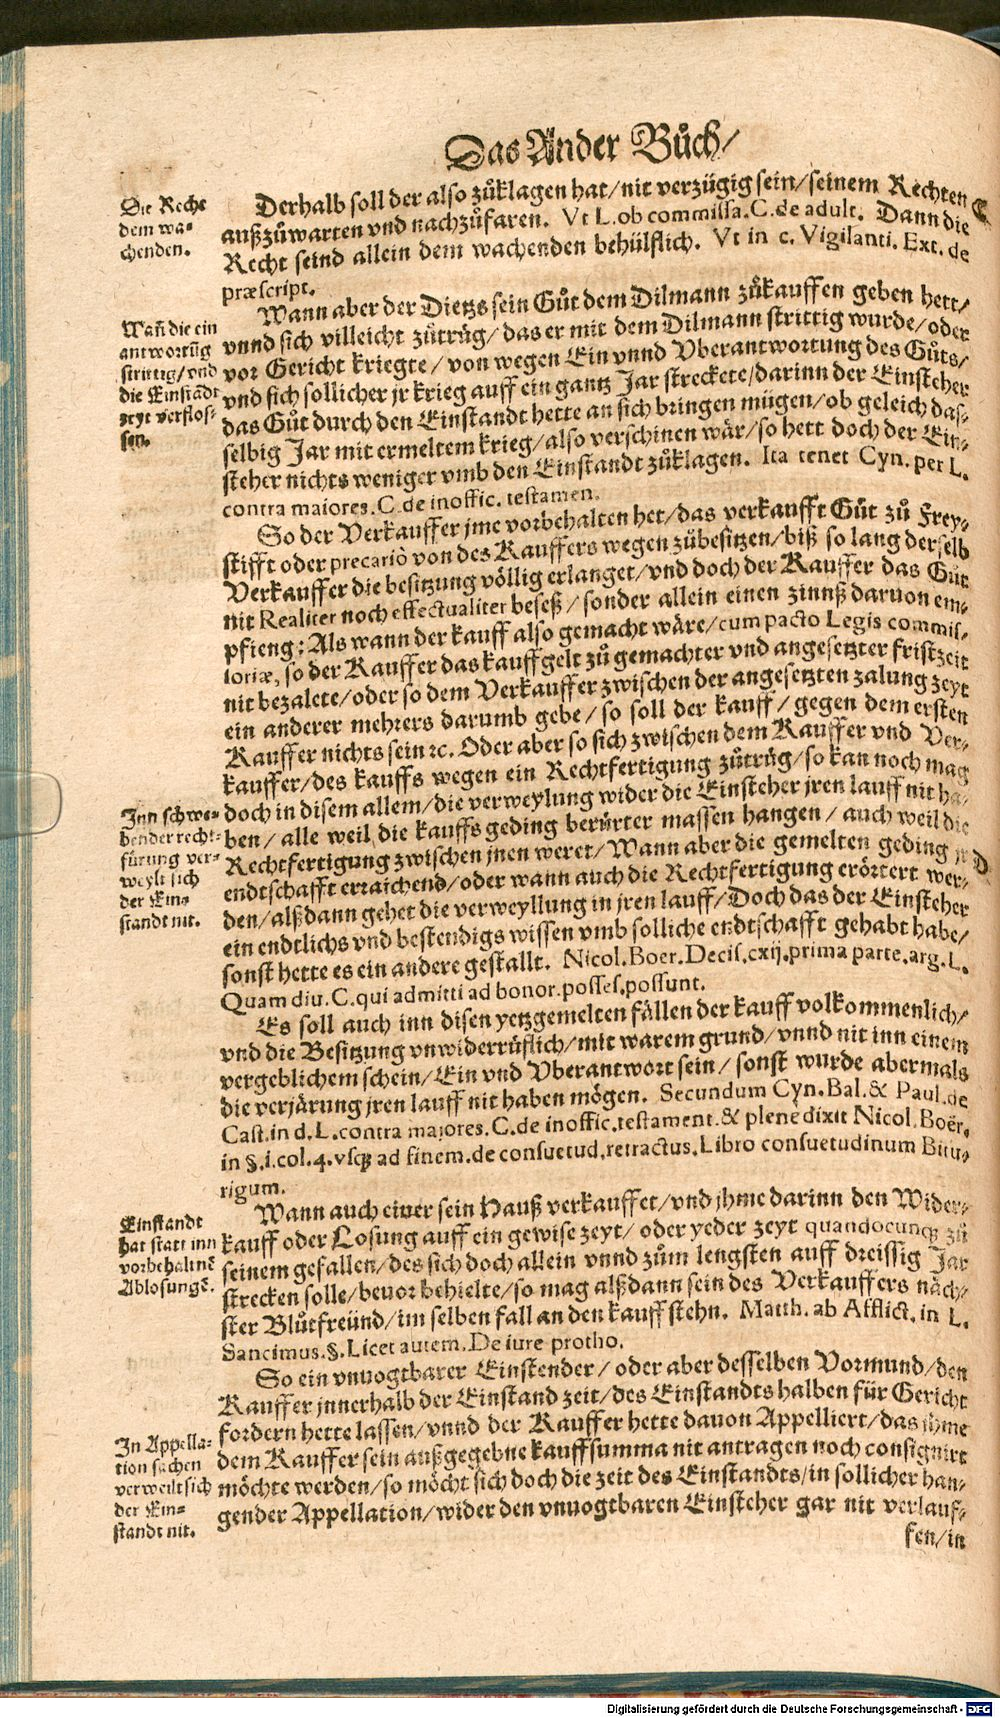 Das Ander Bůch/
Die Recht
dem wa-
chenden.
Derhalb soll der also zůklagen hat/nit verzügig sein/seinem Rechten
außzůwarten vnd nachzůfaren. Vt L. ob commissa. C. de adult. Dann die
Recht seind allein dem wachenden behülflich. Vt in c. Vigilanti. Ext. de
præscript.
Wañ die ein
antwortũg
strittig/vnd
die Einstãdt
zeyt verflos-
sen.
Wann aber der Dietzs sein Gůt dem Dilmann zůkauffen geben hett/
vnnd sich villeicht zůtrůg/das er mit dem Dilmann strittig wurde/oder
vor Gericht kriegte/von wegen Ein vnnd Vberantwortung des Gůts/
vnd sich sollicher jr krieg auff ein gantz Jar streckete/darinn der Einsteher
das Gůt durch den Einstandt hette an sich bringen mügen/ob geleich das-
selbig Jar mit ermeltem krieg/also verschinen wär/so hett doch der Ein-
steher nichts weniger vmb den Einstandt zůklagen. Ita tenet Cyn. per L.
contra maiores. C. de inoffic. testamen.
So der Verkauffer jme vorbehalten het/das verkaufft Gůt zů Frey-
stifft oder precariò von des Kauffers wegen zůbesitzen/biß so lang derselb
Verkauffer die besitzung völlig erlanget/vnd doch der Kauffer das Gůt
nit Realiter noch effectualiter beseß/sonder allein einen zinnß daruon em-
pfieng: Als wann der kauff also gemacht wäre/cum pacto Legis commis-
soriæ, so der Kauffer das kauffgelt zů gemachter vnd angesetzter fristzeit
nit bezalete/oder so dem Verkauffer zwischen der angesetzten zalung zeyt
ein anderer mehrers darumb gebe/so soll der kauff/gegen dem ersten
Kauffer nichts sein ꝛc. Oder aber so sich zwischen dem Kauffer vnd Ver-
kauffer/des kauffs wegen ein Rechtfertigung zůtrůg/so kan noch mag
doch in disem allem/die verweylung wider die Einsteher jren lauff nit ha-
ben/alle weil die kauffs geding berürter massen hangen/auch weil die
Rechtfertigung zwischen jnen weret/Wann aber die gemelten geding jr D
endtschafft erraichend/oder wann auch die Rechtfertigung erörtert wer-
den/alßdann gehet die verweyllung in jren lauff/Doch das der Einsteher
ein endtlichs vnd bestendigs wissen vmb solliche endtschafft gehabt habe/
sonst hette es ein andere gestallt. Nicol. Boer. Decis. cxij. prima parte. arg. L.
Quam diu. C. qui admitti ad bonor. posses. possunt.
Inn schwe-
bender recht-
fürung ver-
weylt sich
der Ein-
standt nit.
Es soll auch inn disen yetzgemelten fällen der kauff volkommenlich/
vnd die Besitzung vnwiderrůflich/mit warem grund/vnnd nit inn einem
vergeblichem schein/Ein vnd Vberantwort sein/sonst wurde abermals
die verjärung jren lauff nit haben mögen. Secundum Cyn. Bal. & Paul. de
Cast. in d. L. contra maiores. C. de inoffic. testament. & plenè dixit Nicol. Boër.
in §. i. col. 4. vsq; ad finem. de consuetud. retractus. Libro consuetudinum Bitu-
rigum.
Einstandt
hat statt inn
vorbehaltnẽ
Ablosungẽ.
Wann auch einer sein Hauß verkauffet/vnd jhme darinn den Wider-
kauff oder Losung auff ein gewise zeyt/oder yeder zeyt quandocunq; zů
seinem gefallen/des sich doch allein vnnd zům lengsten auff dreissig Jar
strecken solle/beuor behielte/so mag alßdann sein des Verkauffers näch-
ster Blůtfreünd/im selben fall an den kauff stehn. Matth. ab Afflict. in L.
Sancimus. §. Licet autem. De iure protho.
So ein vnuogtbarer Einstender/oder aber desselben Vormund/den
Kauffer jnnerhalb der Einstand zeit/des Einstandts halben für Gericht
fordern hette lassen/vnnd der Kauffer hette dauon Appelliert/das jhme
dem Kauffer sein außgegebne kauffsumma nit antragen noch consignirt
möchte werden/so möcht sich doch die zeit des Einstandts/in sollicher han-
gender Appellation/wider den vnuogtbaren Einsteher gar nit verlauf-
In Appella-
tion sachen
verweilt sich
der Ein-
standt nit.
fen/in
Digitalisierung gefördert durch die Deutsche Forschungsgemeinschaft - DFG